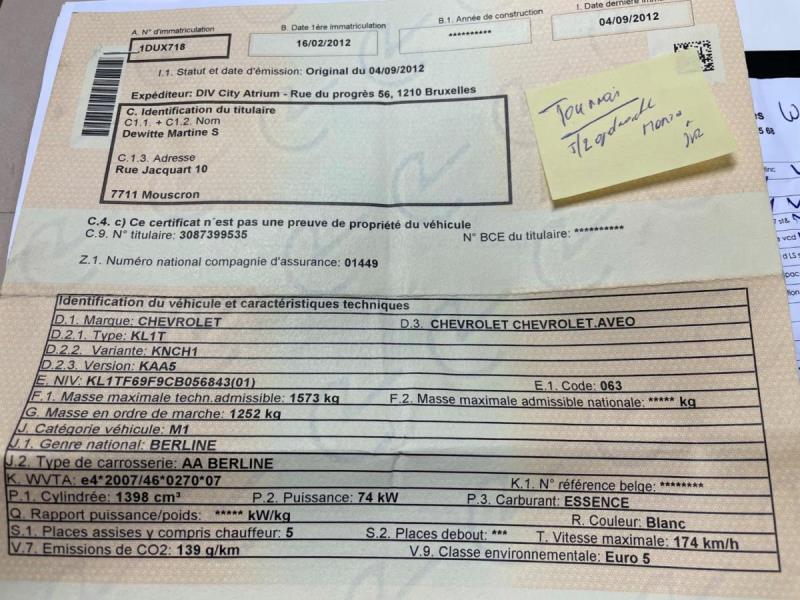 A. N° d'immatriculation
1DUX718
B. Date 1ère immatriculation
16/02/2012
B.1. Année de construction
**********
I. Date dernière
04/09/2012
I.1. Statut et date d'émission: Original du 04/09/2012
Expéditeur: DIV City Atrium - Rue du progrès 56, 1210 Bruxelles
C. Identification du titulaire
C1.1. + C1.2. Nom
Dewitte Martine S
C.1.3. Adresse
Rue Jacquart 10
7711 Mouscron
Tournai
C.4. c) Ce certificat n'est pas une preuve de propriété du véhicule
C.9. N° titulaire: 3087399535
N° BCE du titulaire: **********
Z.1. Numéro national compagnie d'assurance: 01449
Identification du véhicule et caractéristiques techniques
D.1. Marque: CHEVROLET
D.3. CHEVROLET CHEVROLET.AVEO
D.2.1. Type: KL1T
D.2.2. Variante: KNCH1
D.2.3. Version: KAA5
E. NIV: KL1TF69F9CB056843(01)
E.1. Code: 063
F.1. Masse maximale techn.admissible: 1573 kg
F.2. Masse maximale admissible nationale: ***** kg
G. Masse en ordre de marche: 1252 kg
J. Catégorie véhicule: M1
J.1. Genre national: BERLINE
J.2. Type de carrosserie: AA BERLINE
K. WVTA: e4*2007/46*0270*07
K.1. N° référence belge: ********
P.1. Cylindrée: 1398 cm³
P.2. Puissance: 74 kW
P.3. Carburant: ESSENCE
Q. Rapport puissance/poids: ***** kW/kg
R. Couleur: Blanc
S.1. Places assises y compris chauffeur: 5
S.2. Places debout: ***
T. Vitesse maximale: 174 km/h
V.7. Emissions de CO2: 139 g/km
V.9. Classe environnementale: Euro 5